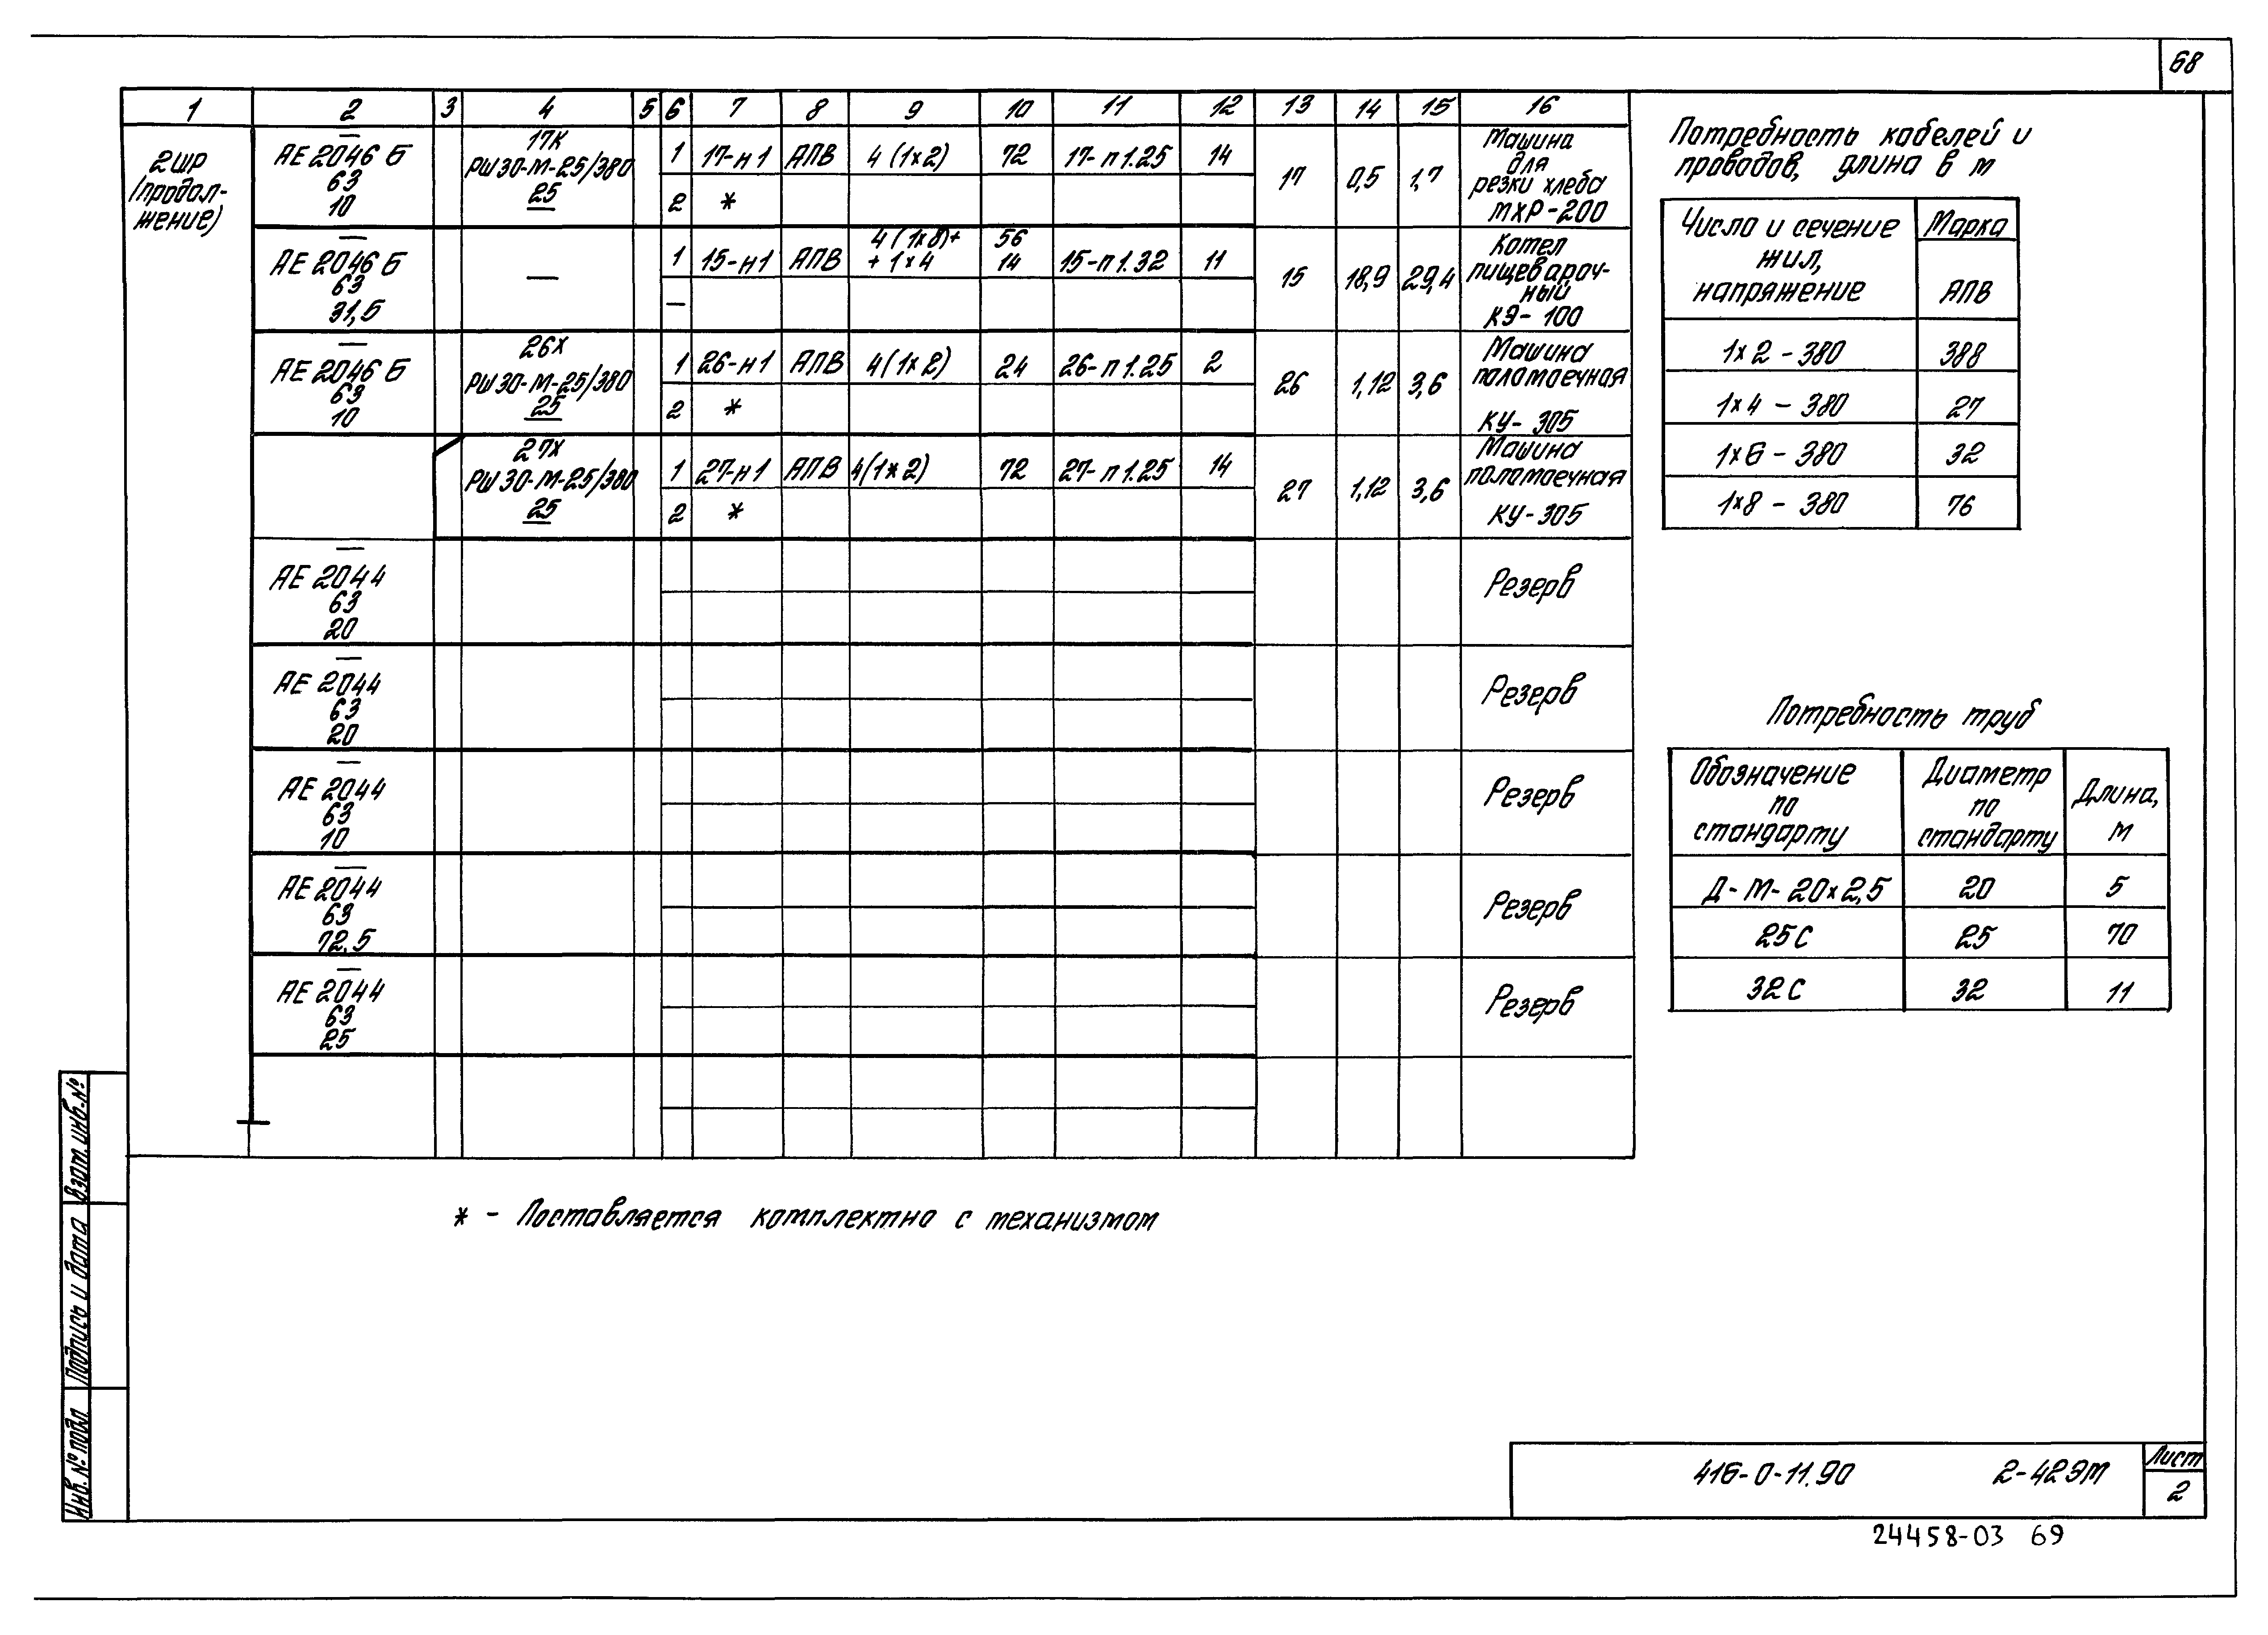 68
1 2 3 4 5 6 7 8 9 10 11 12 13 14 15 16
2ШР
(продол-
жение)
—
АЕ 2046 Б
63
10
17К
РШ 30-М-25/380
25
1 17-н1 АПВ 4 (1×2) 72 17-п1.25 14
2 *
17 0,5 1,7
Машина
для
резки хлеба
МХР-200
—
АЕ 2046 Б
63
31,5
—
1 15-н1 АПВ
4 (1×8)+
+ 1×4
56
14
15-п1.32 11
—
15 18,9 29,4
Котел
пищевароч-
ный
КЭ-100
—
АЕ 2046 Б
63
10
26Х
РШ 30-М-25/380
25
1 26-н1 АПВ 4(1×2) 24 26-п1.25 2
2 *
26 1,12 3,6
Машина
поломоечная
КУ-305
27Х
РШ 30-М-25/380
25
1 27-н1 АПВ 4(1×2) 72 27-п1.25 14
2 *
27 1,12 3,6
Машина
поломоечная
КУ-305
—
АЕ 2044
63
20
Резерв
—
АЕ 2044
63
20
Резерв
—
АЕ 2044
63
10
Резерв
—
АЕ 2044
63
12,5
Резерв
—
АЕ 2044
63
25
Резерв
* - Поставляется комплектно с механизмом
Потребность кабелей и
проводов, длина в м
Число и сечение
жил,
напряжение
Марка
АПВ
1×2 - 380 388
1×4 - 380 27
1×6 - 380 32
1×8 - 380 76
Потребность труб
Обозначение
по
стандарту
Диаметр
по
стандарту
Длина,
м
Д-М-20×2,5 20 5
25С 25 70
32С 32 11
Взам. инв. №
Подпись и дата
Инв. № подл
416-0-11.90 2-42ЭМ
Лист
2
24458-03 69